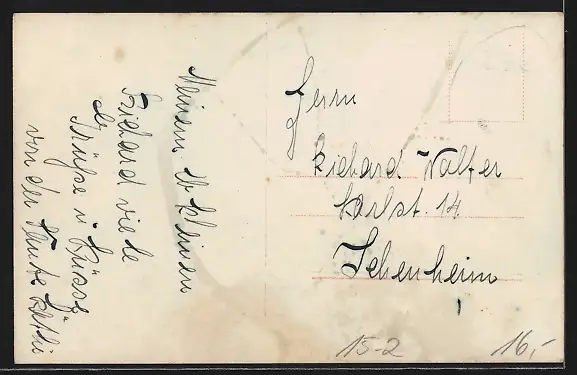 Meinem lb kleinen
Richard viele
Grüße u Küsse
von der Tante
Herrn
Richard Walter
Karlst. 14
Ichenheim
15-2
16,-